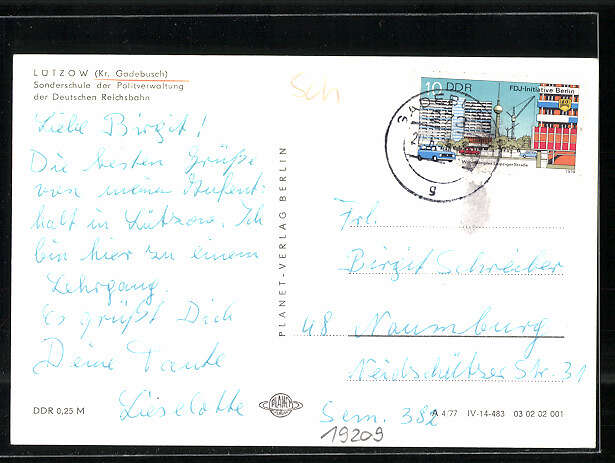 LÜTZOW (Kr. Gadebusch)
Sonderschule der Politverwaltung
der Deutschen Reichsbahn
Liebe Birgit!
Die besten Grüße
von meinem Aufent-
halt in Lützow. Ich
bin hier zu einem
Lehrgang.
Es grüßt Dich
Deine Tante
Lieselotte
DDR 0,25 M
PLANET-VERLAG BERLIN
PLANET
10 DDR
FDJ-Initiative Berlin
Wohngebiet Leipziger Straße
1979
GADEBUSCH
g
Frl.
Birgit Schreiber
48 Naumburg
Neidschützer Str. 31
Sem. 382
A 4/77 IV-14-483 03 02 02 001
19209